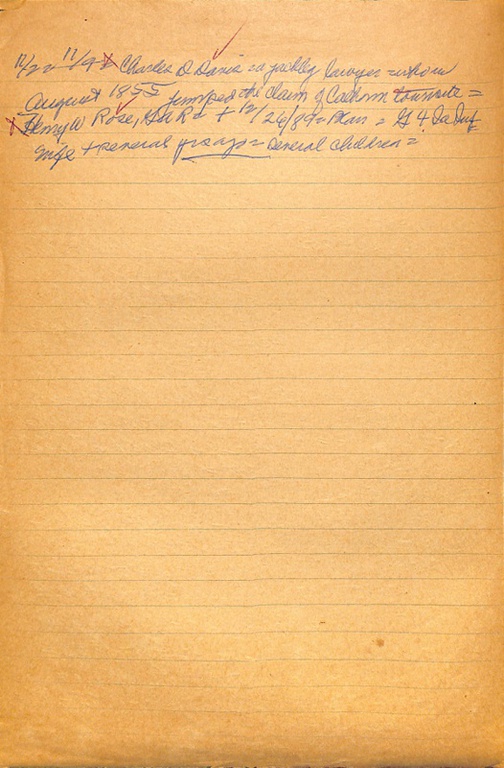 11/22 11/92 X Charles D Davis = a lawyer = whom
August 1855 jumped the claim of Calhoun townsite =
X Henry W Rose, GAR = + 12/26/89 = Plan = G + Ia Inf
wife + several = several children =